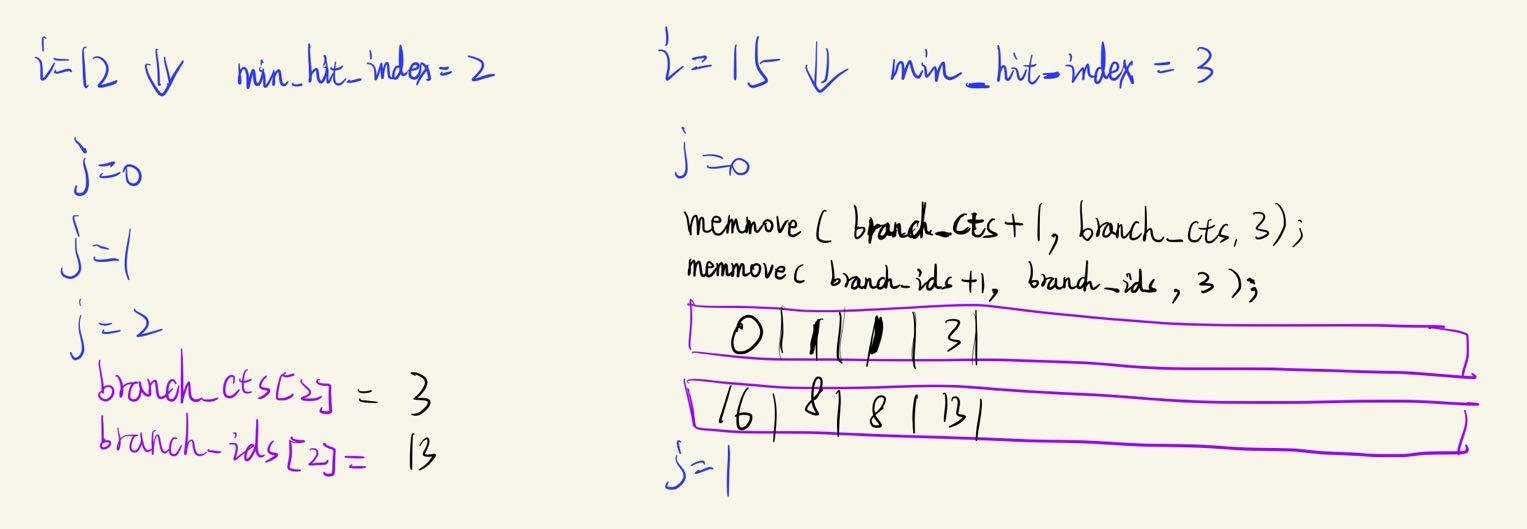 i=12 ⇓ min_hit_index = 2
j=0
j=1
j=2
branch_cts[2] = 3
branch_ids[2] = 13
i=15 ⇓ min_hit_index = 3
j=0
memmove ( branch_cts+1, branch_cts, 3);
memmove ( branch_ids+1, branch_ids, 3);
0 | 1 | 1 | 3 |
16 | 8 | 8 | 13 |
j=1